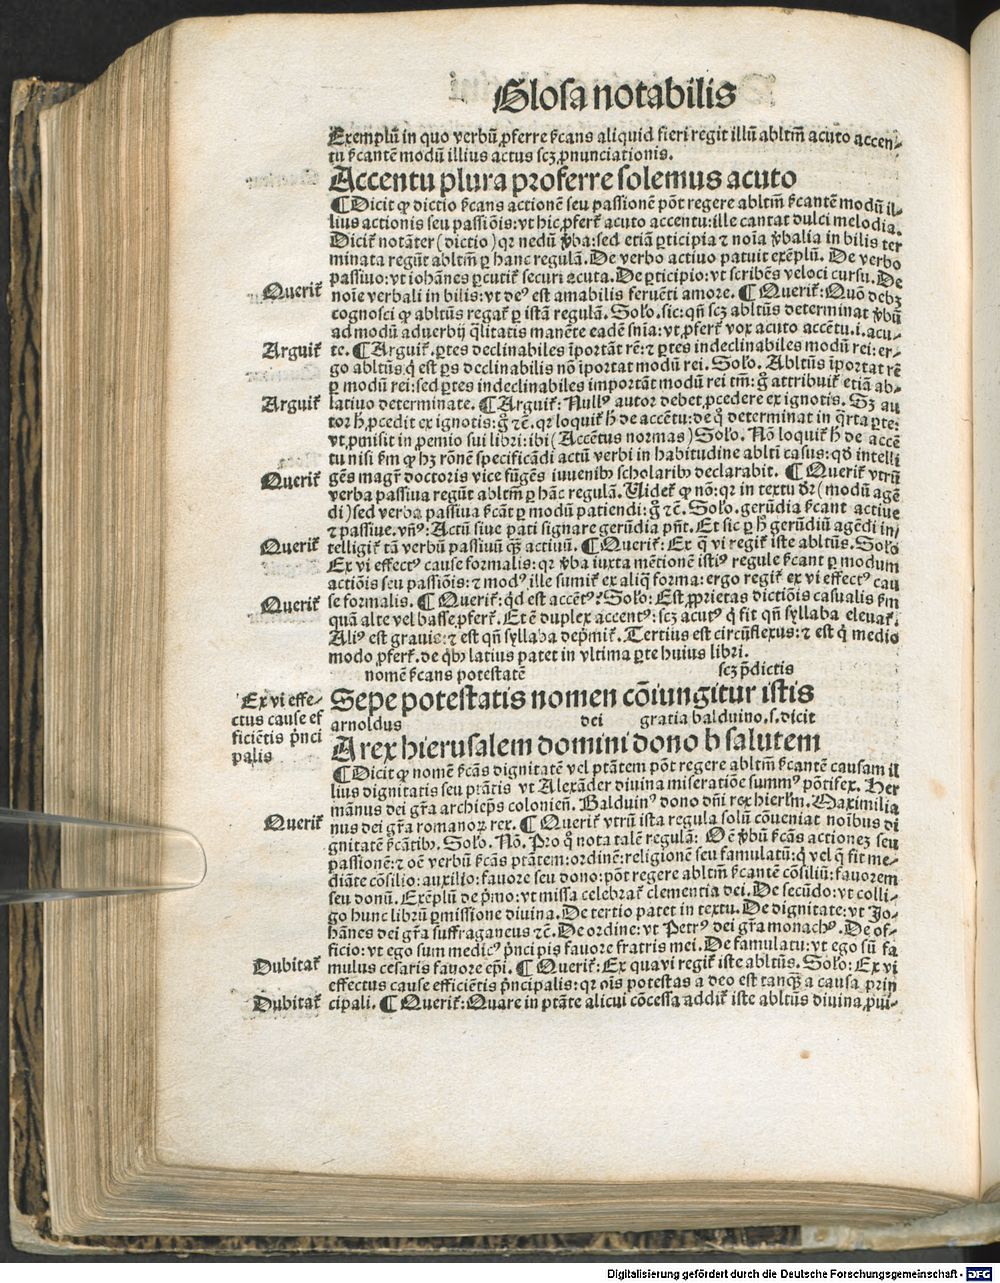 Glosa notabilis
Exemplū in quo verbū ꝓferre ẜcans aliquid fieri regit illū abltm̄ acuto accen-
tu ẜcantē modū illius actus scꝫ ꝓnunciationis.
Accentu plura proferre solemus acuto
¶ Dicit ꝙ dictio ẜcans actionē seu passionē pōt regere abltm̄ ẜcantē modū il-
lius actionis seu passiōis: vt hic ꝓfert᷑ acuto accentu: ille cantat dulci melodia.
Dicit᷑ notāter (dictio) qꝛ nedū ꝟba: sed etiā ꝑticipia ⁊ noīa ꝟbalia in bilis ter
minata regūt abltm̄ ꝑ hanc regulā. De verbo actiuo patuit exēplū. De verbo
passiuo: vt iohānes ꝑcutit᷑ securi acuta. De ꝑticipio: vt scribēs veloci cursu. De
Querit᷑ noīe verbali in bilis: vt deꝰ est amabilis feruēti amore. ¶ Querit᷑: Quō debꝫ
cognosci ꝙ abltūs regat᷑ ꝑ istā regulā. Soło. sic: qn̄ scꝫ abltūs determinat ꝟbū
ad modū aduerbij q̄litatis manēte eadē sn̄ia: vt ꝓfert᷑ vox acuto accētu .i. acu-
Arguit᷑ te. ¶ Arguit᷑. ꝑtes declinabiles īportāt rē: ⁊ ꝑtes indeclinabiles modū rei: er-
go abltūs q̇ est ꝑs declinabilis nō īportat modū rei. Soło. Abltūs īportat rē
ꝑ modū rei: sed ꝑtes indeclinabiles importāt modū rei tm̄: g̊ attribuit᷑ etiā ab-
Arguit᷑ latiuo determinate. ¶ Arguit᷑: Nullꝰ autor debet ꝓcedere ex ignotis. Sꝫ au
tor h̄ ꝓcedit ex ignotis: g̊ ⁊c̄. qꝛ loquit᷑ h̄ de accētu: de q̊ determinat in q̄rta ꝑte:
vt ꝓmisit in ꝓemio sui libri: ibi (Accētus normas) Soło. Nō loquit᷑ h̄ de accē
tu nisi ẜm ꝙ hꝫ rōnē specificādi actū verbi in habitudine ablti casus: qd̄ intelli
gēs magr̄ doctoris vice fūgēs iuuenibꝫ scholaribꝫ declarabit. ¶ Querit᷑ vtrū
Querit᷑ verba passiua regūt abltm̄ ꝑ hāc regulā. Uidet᷑ ꝙ nō: qꝛ in textu dr̄ (modū agē
di) sed verba passiua ẜcāt ꝑ modū patiendi: g̊ ⁊c̄. Soło. gerūdia ẜcant actiue
⁊ passiue. vn̄ꝰ: Actū siue pati signare gerūdia pn̄t. Et sic ꝑ h̄ gerūdiū agēdi in
Querit᷑ telligit᷑ tā verbū passiuū qꝫ̄ actiuū. ¶ Querit᷑: Ex q̄ vi regit᷑ iste abltūs. Soło
Ex vi effectꝰ cause formalis: qꝛ ꝟba iuxta mētionē istiꝰ regule ẜcant ꝑ modum
actiōis seu passiōis: ⁊ modꝰ ille sumit᷑ ex aliq̄ forma: ergo regit᷑ ex vi effectꝰ cau
Querit᷑ se formalis. ¶ Querit᷑: qd̄ est accētꝰ? Soło: Est ꝓprietas dictiōis casualis ẜm
quā alte vel basse ꝓfert᷑. Et ē duplex accentꝰ: scꝫ acutꝰ q̇ fit qn̄ syllaba eleuat᷑.
Aliꝰ est grauis: ⁊ est qn̄ syllaba dep̄mit᷑. Tertius est circūflexus: ⁊ est q̇ medio
modo ꝓfert᷑. de qb̄ꝫ latius patet in vltima ꝑte huius libri.
nomē ẜcans potestatē scꝫ p̄dictis
Sepe potestatis nomen cōiungitur istis
Ex vi effe-
ctus cause ef
ficiētis p̄nci
palis
arnoldus dei gratia balduino .s. dicit
A rex hierusalem domini dono b salutem
¶ Dicit ꝙ nomē ẜcās dignitatē vel ptātem pōt regere abltm̄ ẜcantē causam il
lius dignitatis seu ptātis vt Alexāder diuina miseratiōe summꝰ pōtifex. Her
mānus dei gr̄a archiep̄s colonien̄. Balduinꝰ dono dn̄i rex hierłm. Maximilia
Querit᷑ nus dei gr̄a romanoꝝ rex. ¶ Querit᷑ vtrū ista regula solū cōueniat noībus di
gnitatē ẜcātibꝫ. Soło. Nō. Pro q̊ nota talē regulā: Oē ꝟbū ẜcās actionez seu
passionē: ⁊ oē verbū ẜcās ptātem: ordinē: religionē seu famulatū: q̇ vel q̄ fit me-
diāte cōsilio: auxilio: fauore seu dono: pōt regere abltm̄ ẜcantē cōsiliū: fauorem
seu donū. Exēplū de p̄mo: vt missa celebrat᷑ clementia dei. De secūdo: vt colli-
go hunc librū ꝑmissione diuina. De tertio patet in textu. De dignitate: vt Jo-
hānes dei gr̄a suffraganeus ⁊c̄. De ordine: vt Petrꝰ dei gr̄a monachꝰ. De of-
ficio: vt ego sum medicꝰ p̄ncipis fauore fratris mei. De famulatu: vt ego sū fa
Dubitat᷑ mulus cesaris fauore ep̄i. ¶ Querit᷑: Ex qua vi regit᷑ iste abltūs. Soło: Ex vi
effectus cause efficiētis p̄ncipalis: qꝛ oīs potestas a deo est tanqꝫ̄ a causa prin
Dubitat᷑ cipali. ¶ Querit᷑: Quare in ptāte alicui cōcessa addit᷑ iste abltūs diuina ꝓui-
Digitalisierung gefördert durch die Deutsche Forschungsgemeinschaft - DFG